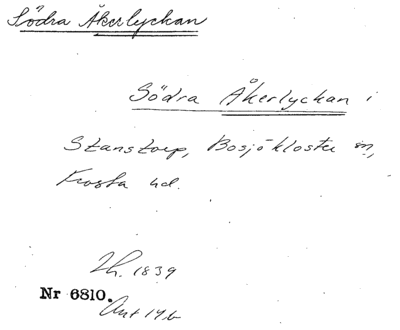 Södra Åkerlyckan
Södra Åkerlyckan i
Stanstorp, Bosjökloster sn,
Frosta hd.
Lh. 1839
Nr 6810.
Avt 1916